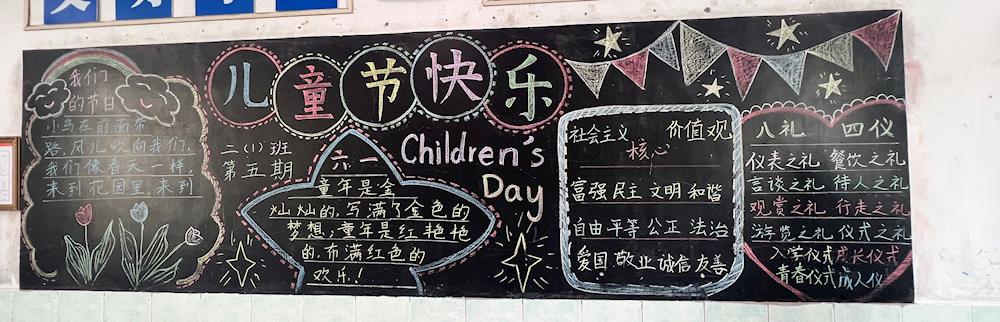 儿童节快乐
Children's
Day
我们
的节日
小鸟在前面带
路,风儿吹向我们,
我们像春天一样,
来到花园里,来到
二(1)班
第五期
六一
童年是金
灿灿的,写满了金色的
梦想;童年是红艳艳
的,布满红色的
欢乐!
社会主义 价值观
核心
富强民主文明和谐
自由平等公正法治
爱国敬业诚信友善
八礼 四仪
仪表之礼 餐饮之礼
言谈之礼 待人之礼
观赏之礼 行走之礼
游览之礼 仪式之礼
入学仪式成长仪式
青春仪式成人仪